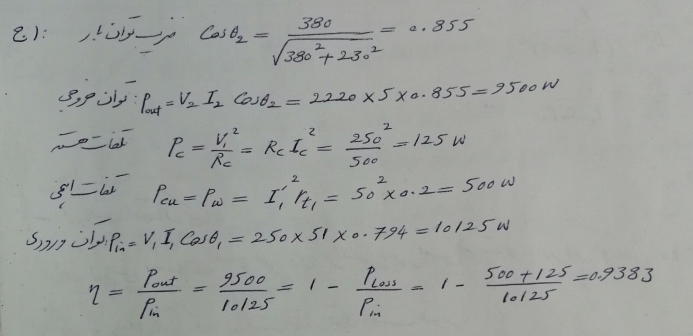 ج): ضریب توان بار Cosθ₂ = 380 / √(380² + 230²) = 0.855
توان خروجی: Pout = V₂ I₂ Cosθ₂ = 2220 × 5 × 0.855 = 9500 W
تلفات هسته Pc = V₁² / Rc = Rc Ic² = 250² / 500 = 125 W
تلفات اهمی Pcu = Pw = I₁′² rt₁ = 50² × 0.2 = 500 W
توان ورودی: Pin = V₁ I₁ Cosθ₁ = 250 × 51 × 0.794 = 10125 W
η = Pout / Pin = 9500 / 10125 = 1 - PLoss / Pin = 1 - (500 + 125) / 10125 = 0.9383